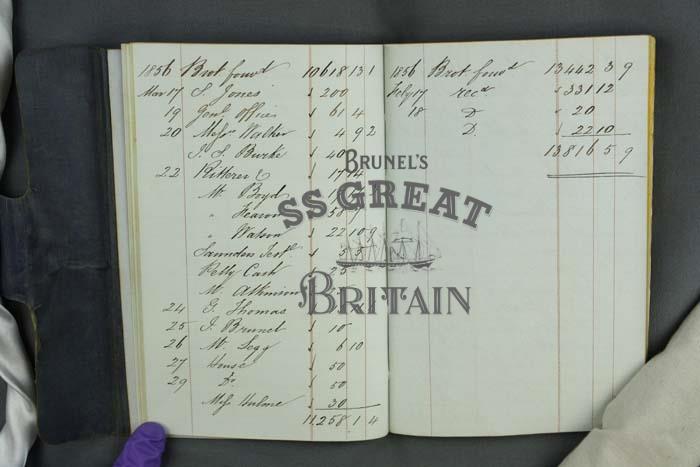 1856 Brot forwd 10618 13 1
Mar 17 S. Jones 200
19 Genl Offices 61 4
20 Messrs Walker 4 9 2
S. S. Burke 40
22
Mr. Boyd
" 50
" Watson 22 10 9
Saunders 5 5
Petty Cash 25
Mr. Atkinson
24 G. Thomas
25 I. Brunel 10
26 Mr. Legg 6 10
27 House 50
29 Do. 50
Mess Hulme 30
11258 1 4
1856 Brot forwd 13442 3 9
Feby 17 recd 331 12
18 D 20
D. 22 10
13816 5 9
BRUNEL'S
SS GREAT
BRITAIN